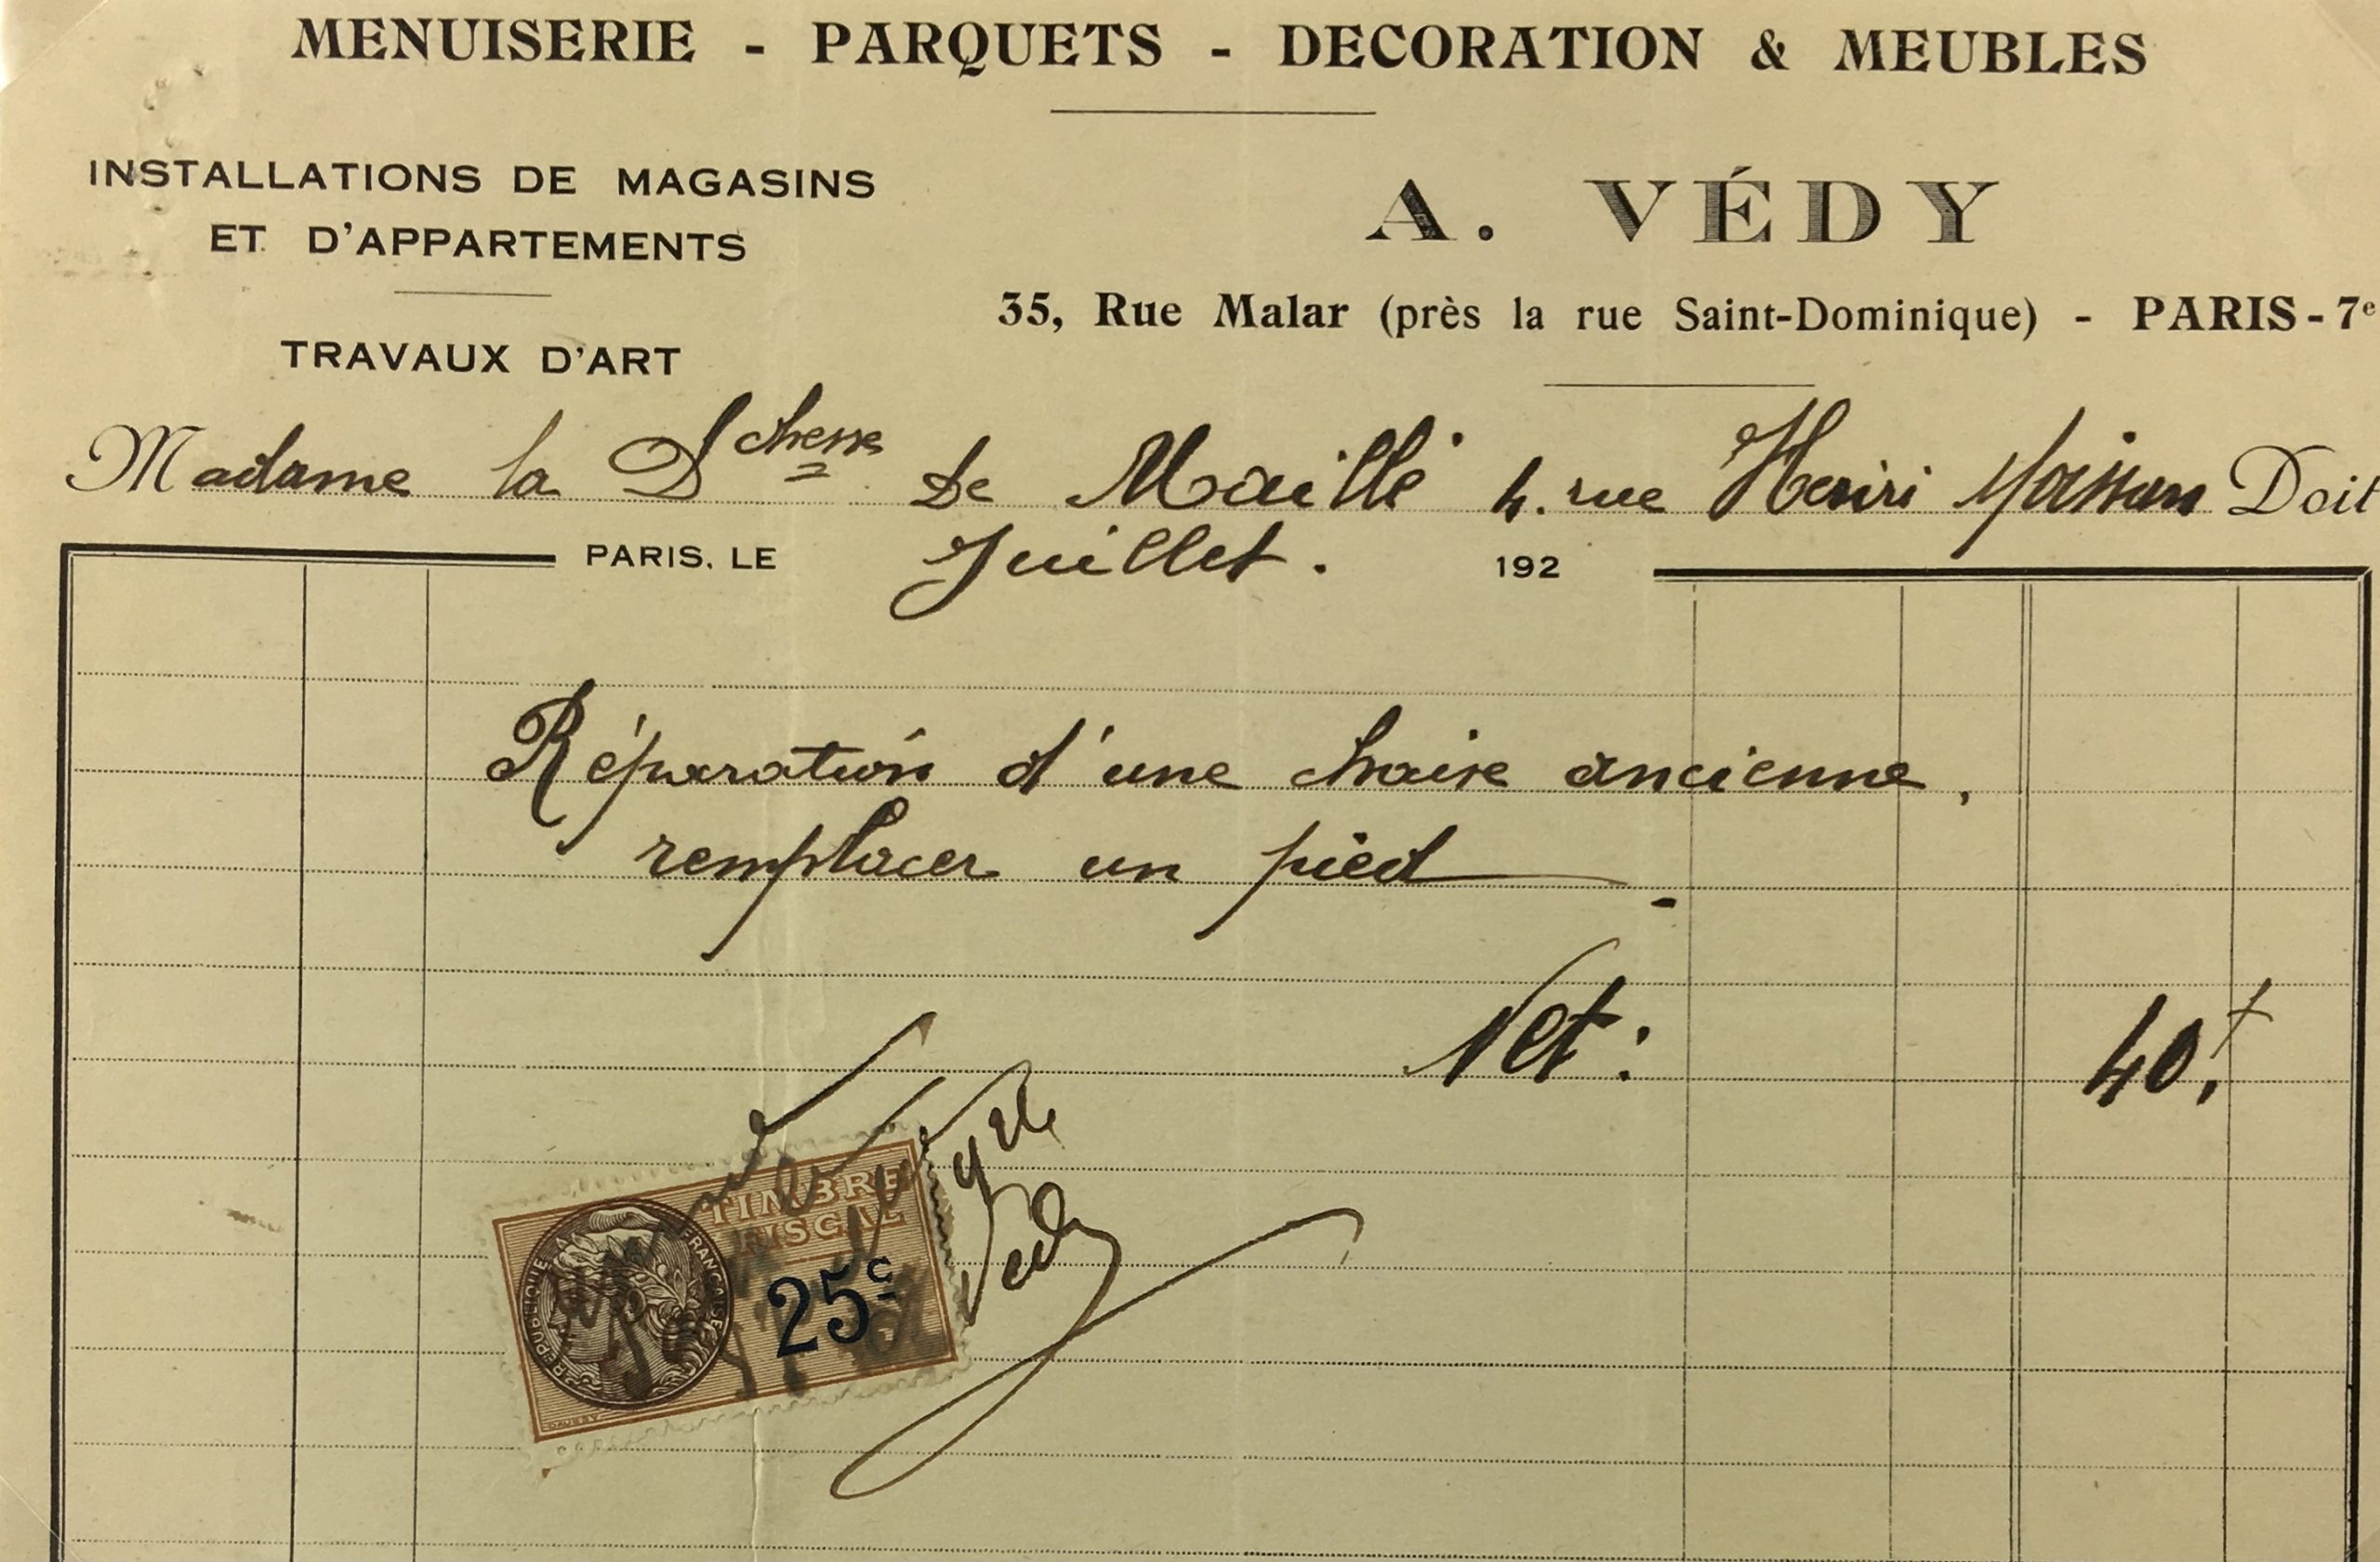 MENUISERIE - PARQUETS - DECORATION & MEUBLES
INSTALLATIONS DE MAGASINS
ET D'APPARTEMENTS
TRAVAUX D'ART
A. VÉDY
35, Rue Malar (près la rue Saint-Dominique) - PARIS-7e
Madame la Dchesse de Maillé 4. rue Henri Moissan Doit
PARIS, LE Juillet. 192
Réparation d'une chaise ancienne,
remplacer un pied
Net: 40.f
TIMBRE
FISCAL
25c
RÉPUBLIQUE FRANÇAISE
Vedy